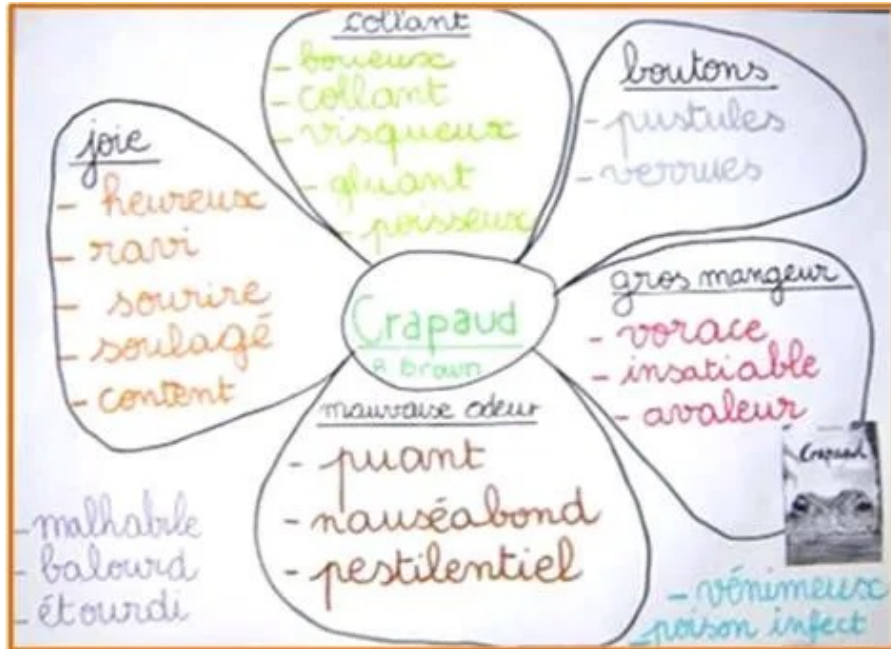 collant
- boueux
- collant
- visqueux
- gluant
- poisseux
boutons
- pustules
- verrues
joie
- heureux
- ravi
- sourire
- soulagé
- content
Crapaud
R Brown
gros mangeur
- vorace
- insatiable
- avaleur
Crapaud
mauvaise odeur
- puant
- nauséabond
- pestilentiel
- malhabile
- balourd
- étourdi
- vénimeux
poison infect